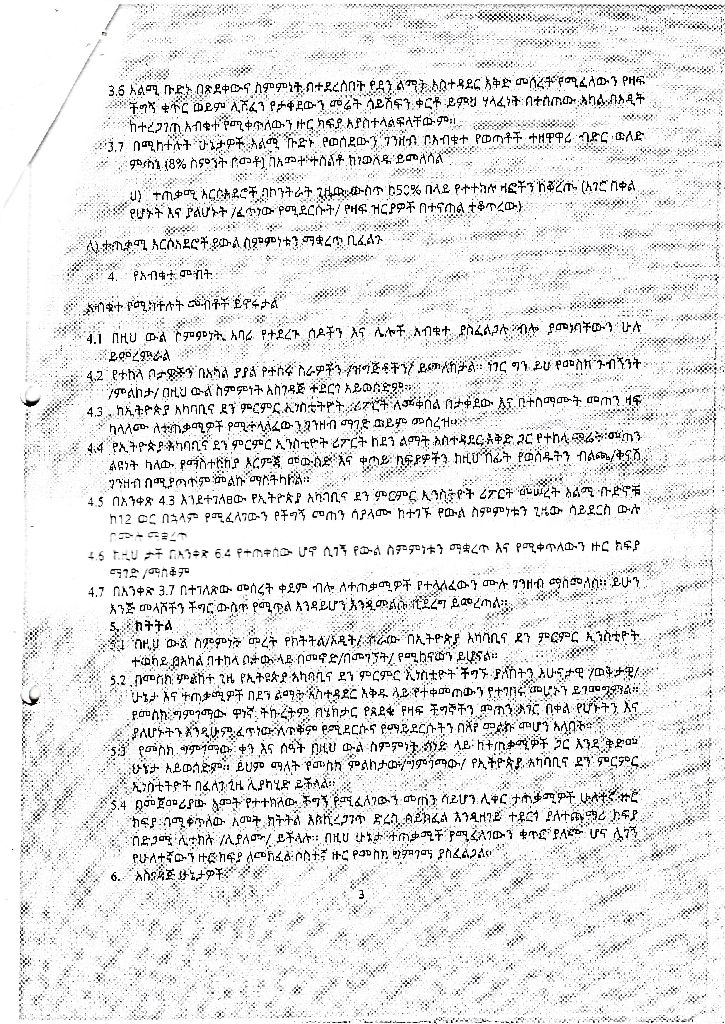 3.6 አልሚ ቡድኑ በጸደቀውና ስምምነት በተደረሰበት የደን ልማት አስተዳደር እቅድ መሰረት የሚፈለገውን የዛፍ
ችግኝ ቁጥር ወይም ሊሸፈን የታቀደውን መሬት ሳይሸፍን ቀርቶ ይህም ሃላፊነት በተሰጠው አካል በኦዲት
ከተረጋገጠ አብቁተ የሚቀጥለውን ዙር ክፍያ አያስተላልፍላቸውም።
3.7 በሚከተሉት ሁኔታዎች አልሚ ቡድኑ የወሰደውን ገንዘብ በአብቁተ የወጣቶች ተዘዋዋሪ ብድር ወለድ
ምጣኔ (8% ስምንት በመቶ) በአመት ተሰልቶ ከነወለዱ ይመለሳል
ሀ) ተጠቃሚ አርሶአደሮች በኮንትራት ጊዜው ውስጥ ከ50% በላይ የተተከሉ ዛፎችን ከቆረጡ (አገር በቀል
የሆኑት እና ያልሆኑት /ፈጥነው የሚደርሱት/ የዛፍ ዝርያዎች በተናጠል ተቆጥረው)
ለ) ተጠቃሚ አርሶአደሮች ይውል ስምምነቱን ማቋረጥ ቢፈልጉ
4. የአብቁተ መብት
አብቁተ የሚከተሉት መብቶች ይኖሩታል
4.1 በዚህ ውል ስምምነት አባሪ የተደረጉ ሰዶችን እና ሌሎች አብቁተ ያስፈልጋሉ ብሎ ያመነባቸውን ሁሉ
ይመረምራል
4.2 የተከላ ቦታዎችን በአካል ያያል የተሰሩ ስራዎችን /ዝግጅቶችን/ ይመለከታል። ነገር ግን ይህ የመስክ ጉብኝት
/ምልከታ/ በዚህ ውል ስምምነት አስገዳጅ ተደርጎ አይወሰድም።
4.3 ከኢትዮጵያ አካባቢና ደን ምርምር ኢንስቲትዮት ሪፖርት ለመቀበል በታቀደው እና በተስማሙት መጠን ዛፍ
ካላለሙ ለተጠቃሚዎች የሚተላለፈውን ገንዘብ ማገድ ወይም መሰረዝ።
4.4 የኢትዮጵያ አካባቢና ደን ምርምር ኢንስቲዮት ሪፖርት ከደን ልማት አስተዳደር እቅድ ጋር የተከላ መሬት መጠን
ልዩነት ካለው የማስተካከያ እርምጃ መውሰድ እና ቀጣይ ክፍያዎችን ከዚህ በፊት የወሰዱትን ብልጫ/ቅናሽ
ገንዘብ በሚያጠጥም መልኩ ማስተካከል።
4.5 በአንቀጽ 4.3 እንደተገለፀው የኢትዮጵያ አካባቢና ደን ምርምር ኢንስቲዮት ሪፖርት መሠረት አልሚ ቡድኖቹ
ከ12 ወር በኋላም የሚፈለገውን የችግኝ መጠን ሳያላሙ ከተገኙ የውል ስምምነቱን ጊዜው ሳይደርስ ውሉ
በሙሉ ማቋረጥ
4.6 ከዚህ ታች በአንቀጽ 6.4 የተጠቀሰው ሆኖ ሲገኝ የውል ስምምነቱን ማቋረጥ እና የሚቀጥለውን ዙር ክፍያ
ማገድ /ማስቆም
4.7 በአንቀጽ 3.7 በተገለጽው መሰረት ቀደም ብሎ ለተጠቃሚዎች የተላለፈውን ሙሉ ገንዘብ ማስመለስ። ይሁን
እንጅ መላሾችን ችግር ውስጥ የሚጥል እንዳይሆን እንዲመልሱ ቢደረግ ይመረጣል።
5. ክትትል
5.1 በዚህ ውል ስምምነት መረት የክትትል/ኦዲት/ ስራው በኢትዮጵያ አካባቢና ደን ምርምር ኢንስቲዮት
ተወካይ በአካል በተከላ ቦታው ላይ በመሄድ/በመገኘት/ የሚከናወን ይሆናል።
5.2 በመስክ ምልከታ ጊዜ የኢትዮጵያ አካባቢና ደን ምርምር ኢንስቲዮት ችግኙ ያለበትን አሁናታዊ /ወቅታዊ/
ሁኔታ እና ተጠቃሚዎች በደን ልማት አስተዳደር እቅዱ ላይ የተቀመጠውን የተገበሩ መሆኑን ይገመግማል።
የመስክ ግምገማው ዋነኛ ትኩረትም በሄክታር የጸደቁ የዛፍ ችግኞችን ምጠን አገር በቀል የሆኑትን እና
ያለሆኑትን እንዲሁም ፈጥነው ለጥቅም የሚደርሱና የማይደርሱትን በለየ መልኩ መሆን አለበት።
5.3 የመስክ ግምገማው ቀን እና ሰዓት በዚህ ውል ስምምነት ሰነድ ላይ ከተጠቃሚዎች ጋር እንደ ቅድመ
ሁኔታ አይወሰድም። ይህም ማለት የመስክ ምልከታው/ግምገማው/ የኢትዮጵያ አካባቢና ደን ምርምር
ኢንስቲትዮት በፈለገ ጊዜ ሊያካሂድ ይችላል።
5.4 በመጀመሪያው አመት የተተከለው ችግኝ የሚፈለገውን መጠን ሳይሆን ሊቀር ተጠቃሚዎች ሁለተኛ ዙር
ክፍያ በሚቀጥለው አመት ክትትል እስኪረጋገጥ ድረስ ሳይከፈል እንዲዘገይ ተደርጎ ያለተጨማሪ ክፍያ
በድጋሚ ሊተከሉ /ሊያለሙ/ ይችላሉ። በዚህ ሁኔታ ተጠቃሚች የሚፈለገውን ቁጥር ያለሙ ሆና ሊገኝ
የሁለተኛውን ዙር ክፍያ ለመክፈል ሶስተኛ ዙር የመስክ ግምገማ ያስፈልጋል።
6. አስገዳጅ ሁኔታዎች
3